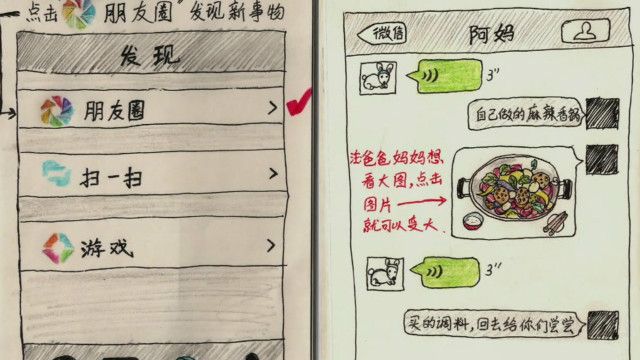 点击 朋友圈"发现新事物
发现
朋友圈
扫一扫
游戏
微信
阿妈
3"
自己做的麻辣香锅
注:爸爸妈妈想
看大图,点击
图片
就可以变大.
3"
买的调料,回去给你们尝尝